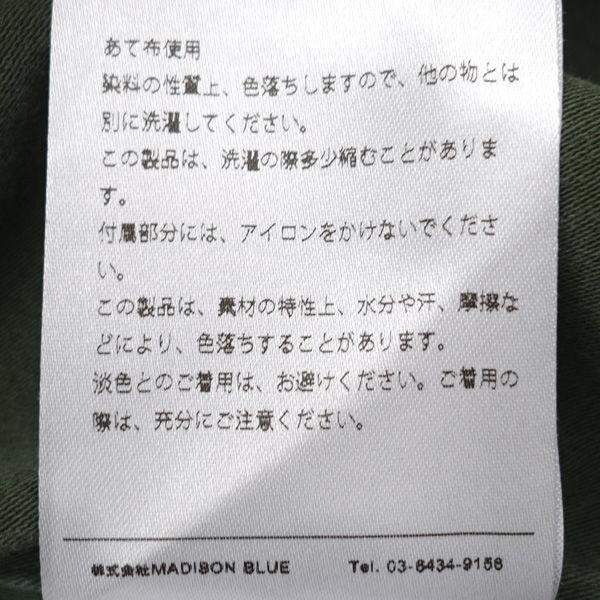 あて布使用
染料の性質上、色落ちしますので、他の物とは
別に洗濯してください。
この製品は、洗濯の際多少縮むことがありま
す。
付属部分には、アイロンをかけないでくださ
い。
この製品は、素材の特性上、水分や汗、摩擦な
どにより、色落ちすることがあります。
淡色とのご着用は、お避けください。ご着用の
際は、充分にご注意ください。
株式会社MADISON BLUE Tel. 03-6434-9156